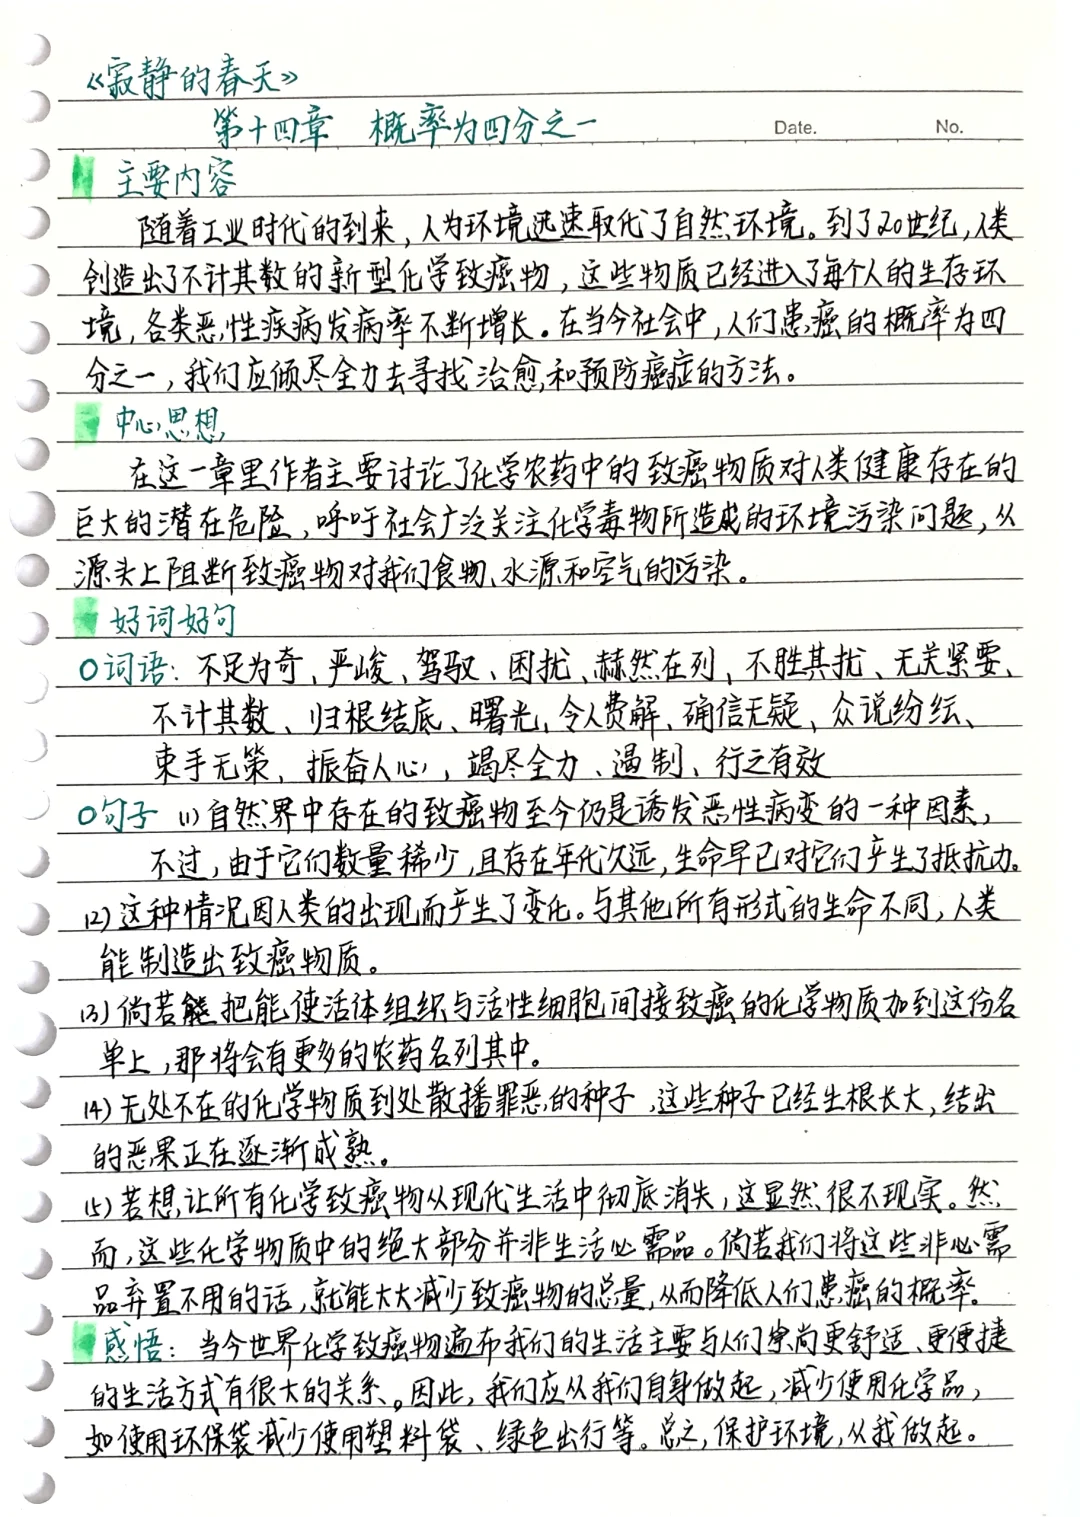 《寂静的春天》
第十四章 概率为四分之一
Date. No.
主要内容
随着工业时代的到来，人为环境迅速取代了自然环境。到了20世纪，人类
创造出了不计其数的新型化学致癌物，这些物质已经进入了每个人的生存环
境，各类恶性疾病发病率不断增长。在当今社会中，人们患癌的概率为四
分之一，我们应倾尽全力去寻找治愈和预防癌症的方法。
中心思想
在这一章里作者主要讨论了化学农药中的致癌物质对人类健康存在的
巨大的潜在危险，呼吁社会广泛关注化学毒物所造成的环境污染问题，从
源头上阻断致癌物对我们食物、水源和空气的污染。
好词好句
O词语：不足为奇、严峻、驾驭、困扰、赫然在列、不胜其扰、无关紧要、
不计其数、归根结底、曙光、令人费解、确信无疑、众说纷纭、
束手无策、振奋人心，竭尽全力、遏制、行之有效
O句子 (1)自然界中存在的致癌物至今仍是诱发恶性病变的一种因素，
不过，由于它们数量稀少，且存在年代久远，生命早已对它们产生了抵抗力。
(2)这种情况因人类的出现而产生了变化。与其他所有形式的生命不同，人类
能制造出致癌物质。
(3)倘若把能使活体组织与活性细胞间接致癌的化学物质加到这份名
单上，那将会有更多的农药名列其中。
(4)无处不在的化学物质到处散播罪恶的种子，这些种子已经生根长大，结出
的恶果正在逐渐成熟。
(5)若想让所有化学致癌物从现代生活中彻底消失，这显然很不现实。然
而，这些化学物质中的绝大部分并非生活必需品。倘若我们将这些非必需
品弃置不用的话，就能大大减少致癌物的总量，从而降低人们患癌的概率。
感悟：当今世界化学致癌物遍布我们的生活主要与人们崇尚更舒适、更便捷
的生活方式有很大的关系。因此，我们应从我们自身做起，减少使用化学品，
如使用环保袋减少使用塑料袋、绿色出行等。总之，保护环境，从我做起。